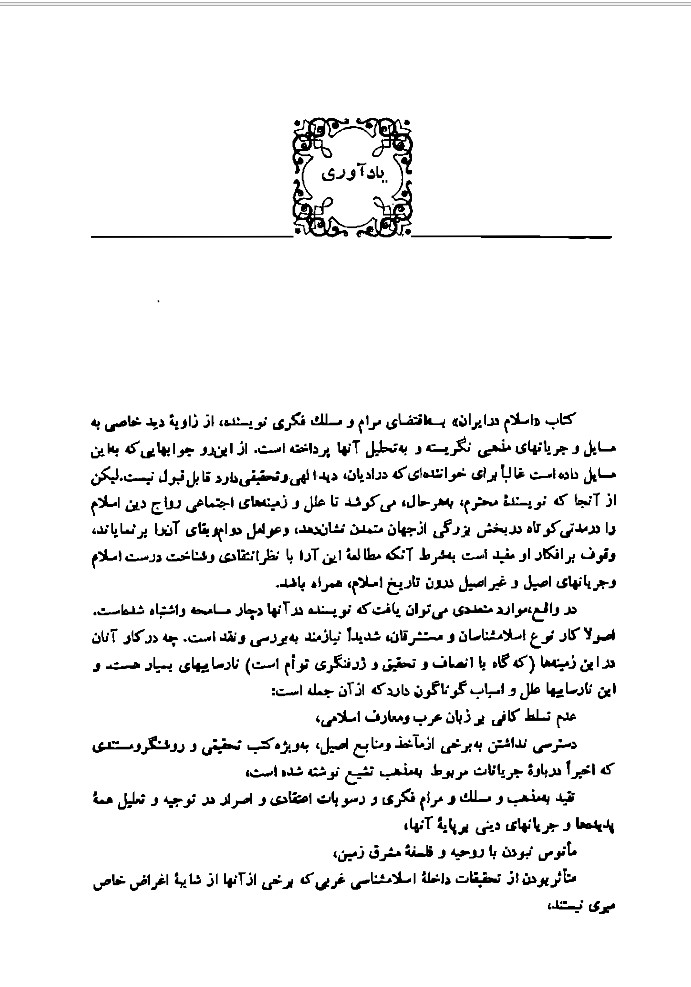 یادآوری
کتاب «اسلام در ایران» به‌اقتضای مرام و مسلك فکری نویسنده، از زاویهٔ دید خاصی به
مسایل و جریانهای مذهبی نگریسته و به‌تحلیل آنها پرداخته است. از این‌رو جوابهایی که به‌این
مسایل داده است غالباً برای خواننده‌ای که در ادیان، دید الهی و تحقیقی دارد قابل قبول نیست. لیکن
از آنجا که نویسندهٔ محترم، به‌هرحال، می‌کوشد تا علل و زمینه‌های اجتماعی رواج دین اسلام
را در مدتی کوتاه در بخش بزرگی از جهان متمدن نشان‌دهد، و عوامل دوام و بقای آن را برنمایاند،
وقوف بر افکار او مفید است به‌شرط آنکه مطالعهٔ این آرا با نظر انتقادی و شناخت درست اسلام
و جریانهای اصیل و غیر اصیل درون تاریخ اسلام، همراه باشد.
در واقع، موارد متعددی می‌توان یافت که نویسنده در آنها دچار مسامحه و اشتباه شده‌است.
اصولا کار نوع اسلامشناسان و مستشرقان، شدیداً نیازمند به‌بررسی و نقد است. چه در کار آنان
در این زمینه‌ها (که گاه با انصاف و تحقیق و ژرفنگری توأم است) نارساییهای بسیار هست. و
این نارساییها علل و اسباب گوناگون دارد که از آن جمله است:
عدم تسلط کافی بر زبان عرب و معارف اسلامی،
دسترسی نداشتن به‌برخی از مآخذ و منابع اصیل، به‌ویژه کتب تحقیقی و روشنگر و مستندی
که اخیراً دربارهٔ جریانات مربوط به‌مذهب تشیع نوشته شده است،
تقید به‌مذهب و مسلك و مرام فکری و رسوبات اعتقادی و اصرار در توجیه و تعلیل همهٔ
پدیده‌ها و جریانهای دینی بر پایهٔ آنها،
مأنوس نبودن با روحیه و فلسفهٔ مشرق زمین،
متأثر بودن از تحقیقات داخلهٔ اسلامشناسی غربی که برخی از آنها از شایبهٔ اغراض خاص
مبری نیستند،